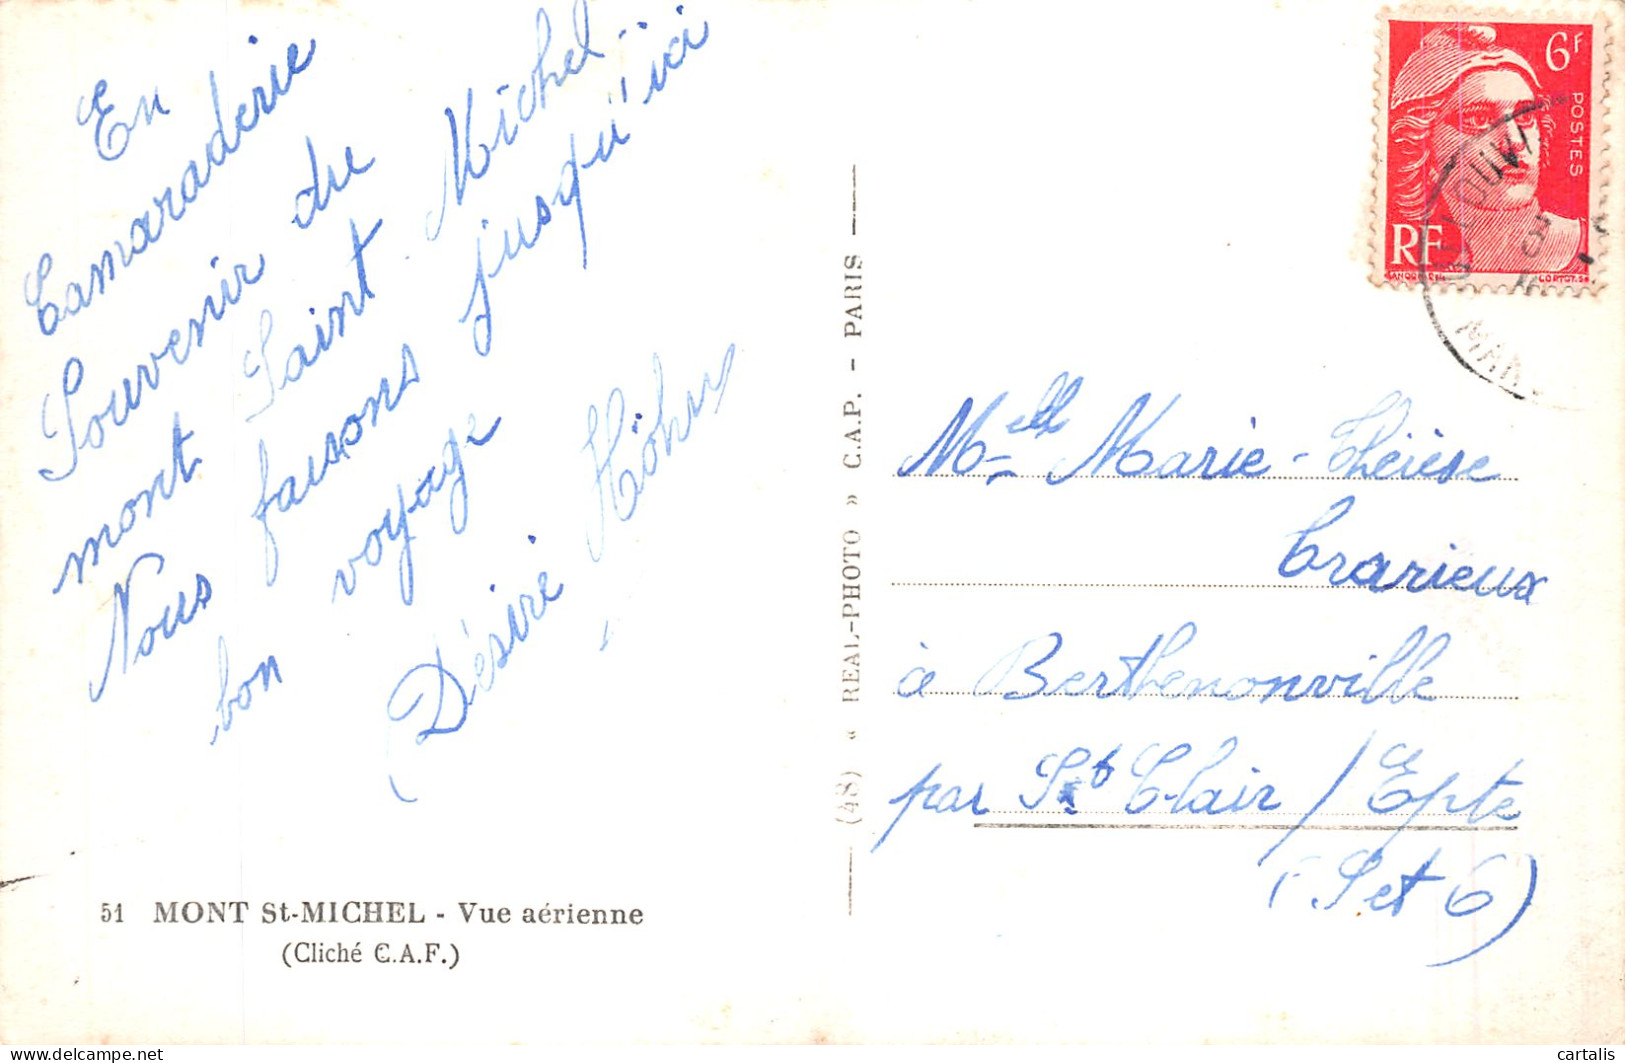 En
Camaraderie
Souvenir du
mont Saint Michel
Nous faisons jusqu'ici
bon voyage
Désiré
51 MONT St-MICHEL - Vue aérienne
(Cliché C.A.F.)
(48) « REAL-PHOTO » C.A.P. - PARIS
6F
POSTES
RF
Melle Marie-Thérèse
Crarieux
à Berthenonville
par St Clair / Epte
(S et O)
cartalis